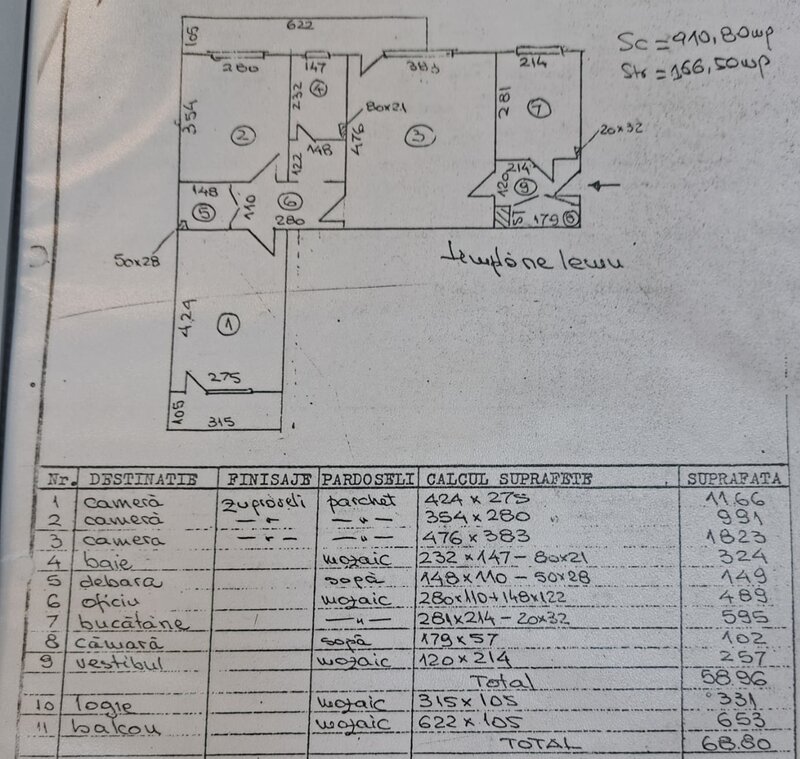 622
105
Sc = 910,80 mp
Str = 166,50 mp
280
147
383
214
354
232
4
80x21
281
7
2
148
476
3
20x32
122
214
148
110
6
120
9
5
280
57
179
8
50x28
tâmplărie lemn
424
1
275
105
315
Nr. DESTINATIE FINISAJE PARDOSELI CALCUL SUPRAFETE SUPRAFATA
1 cameră zugrăveli parchet 424 x 275 11.66
2 cameră —"— —"— 354 x 280 991
3 camera —"— —"— 476 x 383 1823
4 baie mozaic 232 x 147 - 80x21 324
5 debara sapă 148 x 110 - 50x28 149
6 oficiu mozaic 280x110+148x122 489
7 bucătărie —"— 281x214 - 20x32 595
8 cămară sapă 179 x 57 102
9 vestibul mozaic 120 x 214 257
Total 58.96
10 logie mozaic 315 x 105 331
11 balcon mozaic 622 x 105 653
TOTAL 68.80